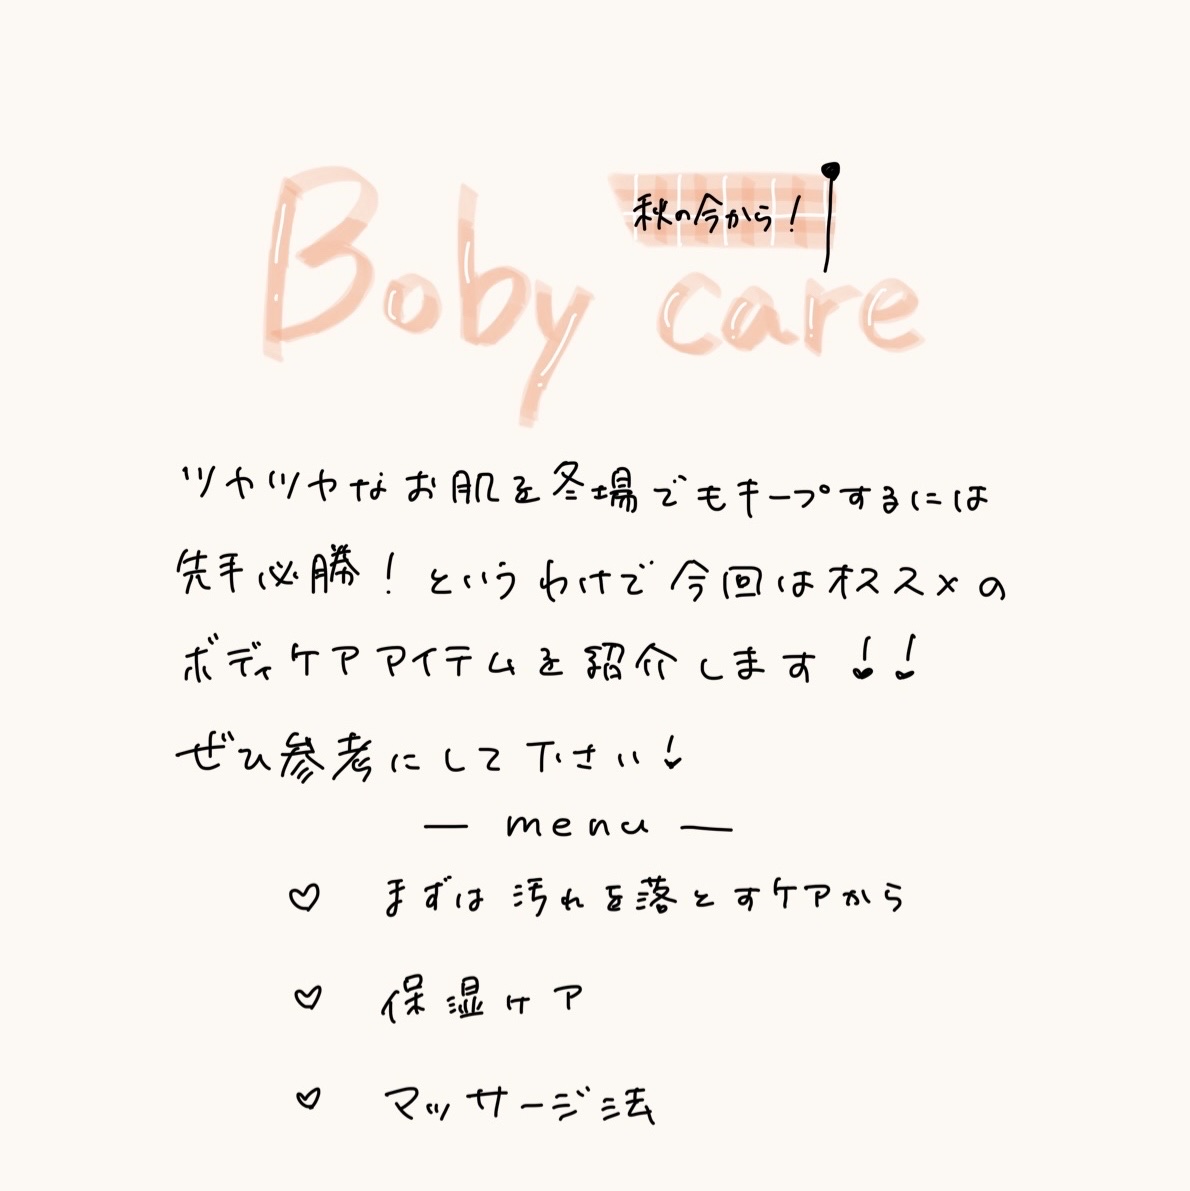 秋の今から！
Boby care
ツヤツヤなお肌を冬場でもキープするには
先手必勝！というわけで今回はオススメの
ボディケアアイテムを紹介します！！
ぜひ参考にして下さい！
— menu —
♡ まずは汚れを落とすケアから
♡ 保湿ケア
♡ マッサージ法